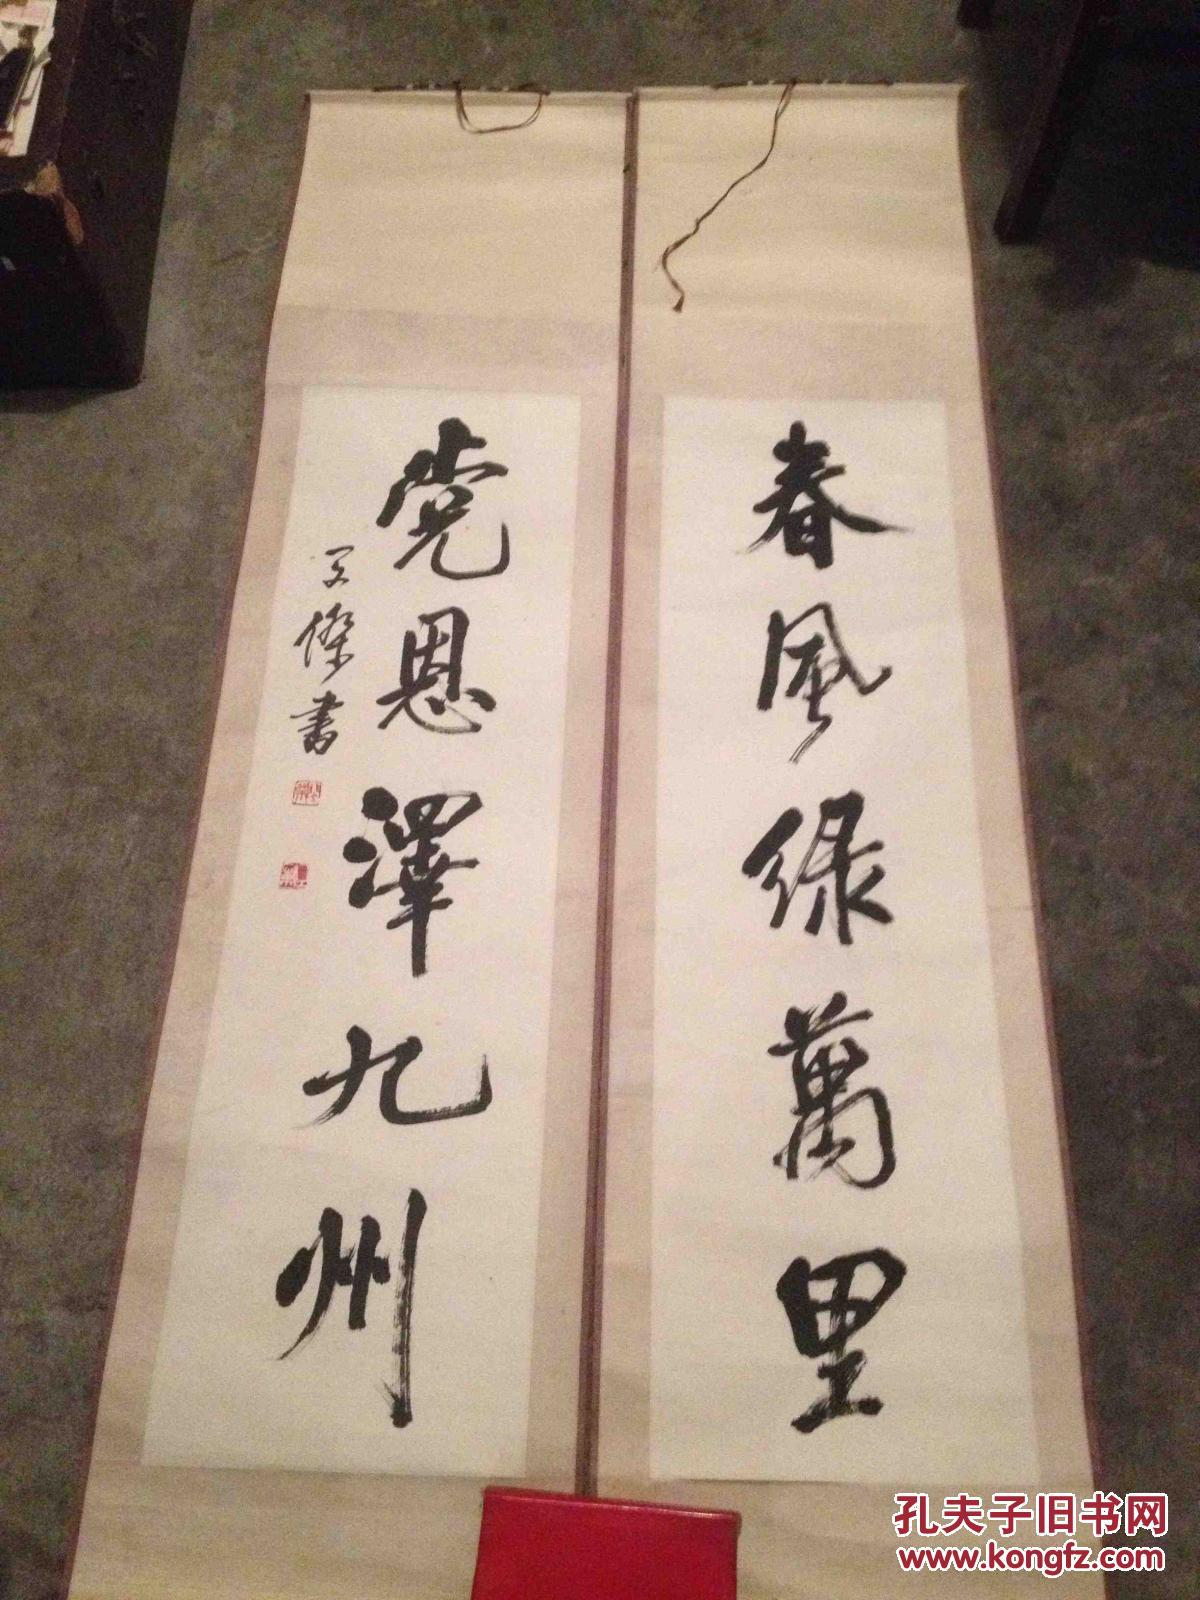 春风绿萬里
党恩泽九州
傑書
孔夫子旧书网
www.kongfz.com